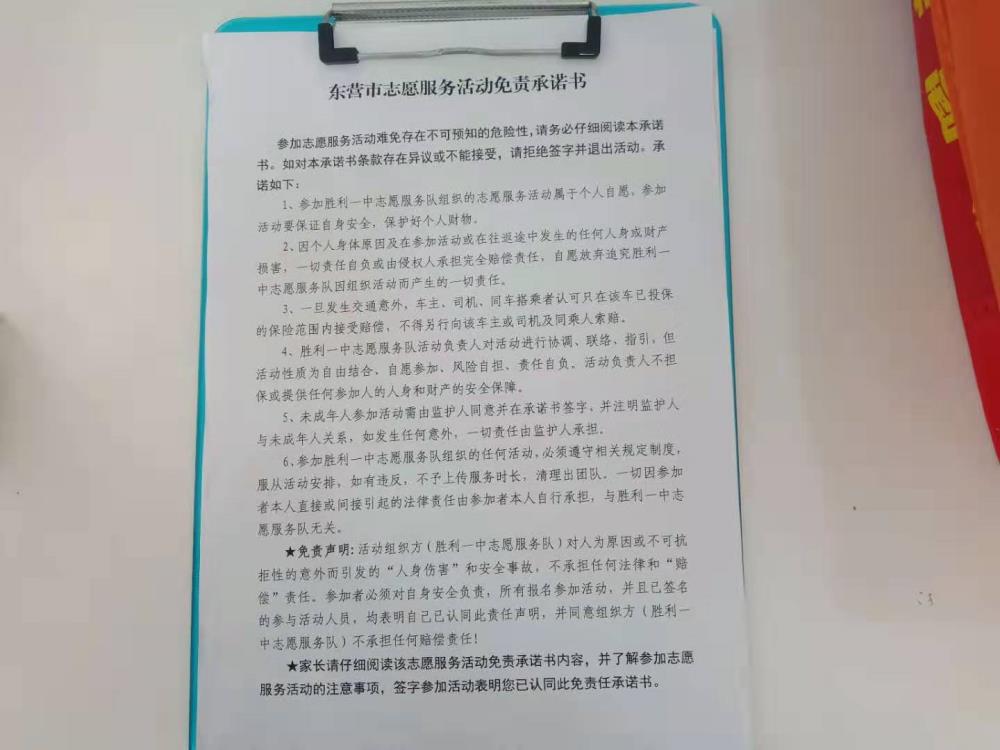 东营市志愿服务活动免责承诺书
参加志愿服务活动难免存在不可预知的危险性,请务必仔细阅读本承诺
书。如对本承诺书条款存在异议或不能接受，请拒绝签字并退出活动。承
诺如下：
1、参加胜利一中志愿服务队组织的志愿服务活动属于个人自愿，参加
活动要保证自身安全，保护好个人财物。
2、因个人身体原因及在参加活动或在往返途中发生的任何人身或财产
损害，一切责任自负或由侵权人承担完全赔偿责任，自愿放弃追究胜利一
中志愿服务队因组织活动而产生的一切责任。
3、一旦发生交通意外，车主、司机、同车搭乘者认可只在该车已投保
的保险范围内接受赔偿，不得另行向该车主或司机及同乘人索赔。
4、胜利一中志愿服务队活动负责人对活动进行协调、联络、指引，但
活动性质为自由结合、自愿参加、风险自担、责任自负。活动负责人不担
保或提供任何参加人的人身和财产的安全保障。
5、未成年人参加活动需由监护人同意并在承诺书签字，并注明监护人
与未成年人关系，如发生任何意外，一切责任由监护人承担。
6、参加胜利一中志愿服务队组织的任何活动，必须遵守相关规定制度，
服从活动安排，如有违反，不予上传服务时长，清理出团队。一切因参加
者本人直接或间接引起的法律责任由参加者本人自行承担，与胜利一中志
愿服务队无关。
★免责声明:活动组织方（胜利一中志愿服务队）对人为原因或不可抗
拒性的意外而引发的“人身伤害”和安全事故，不承担任何法律和“赔
偿”责任。参加者必须对自身安全负责，所有报名参加活动，并且已签名
的参与活动人员，均表明自己已认同此责任声明，并同意组织方（胜利一
中志愿服务队）不承担任何赔偿责任！
★家长请仔细阅读该志愿服务活动免责承诺书内容，并了解参加志愿
服务活动的注意事项，签字参加活动表明您已认同此免责任承诺书。